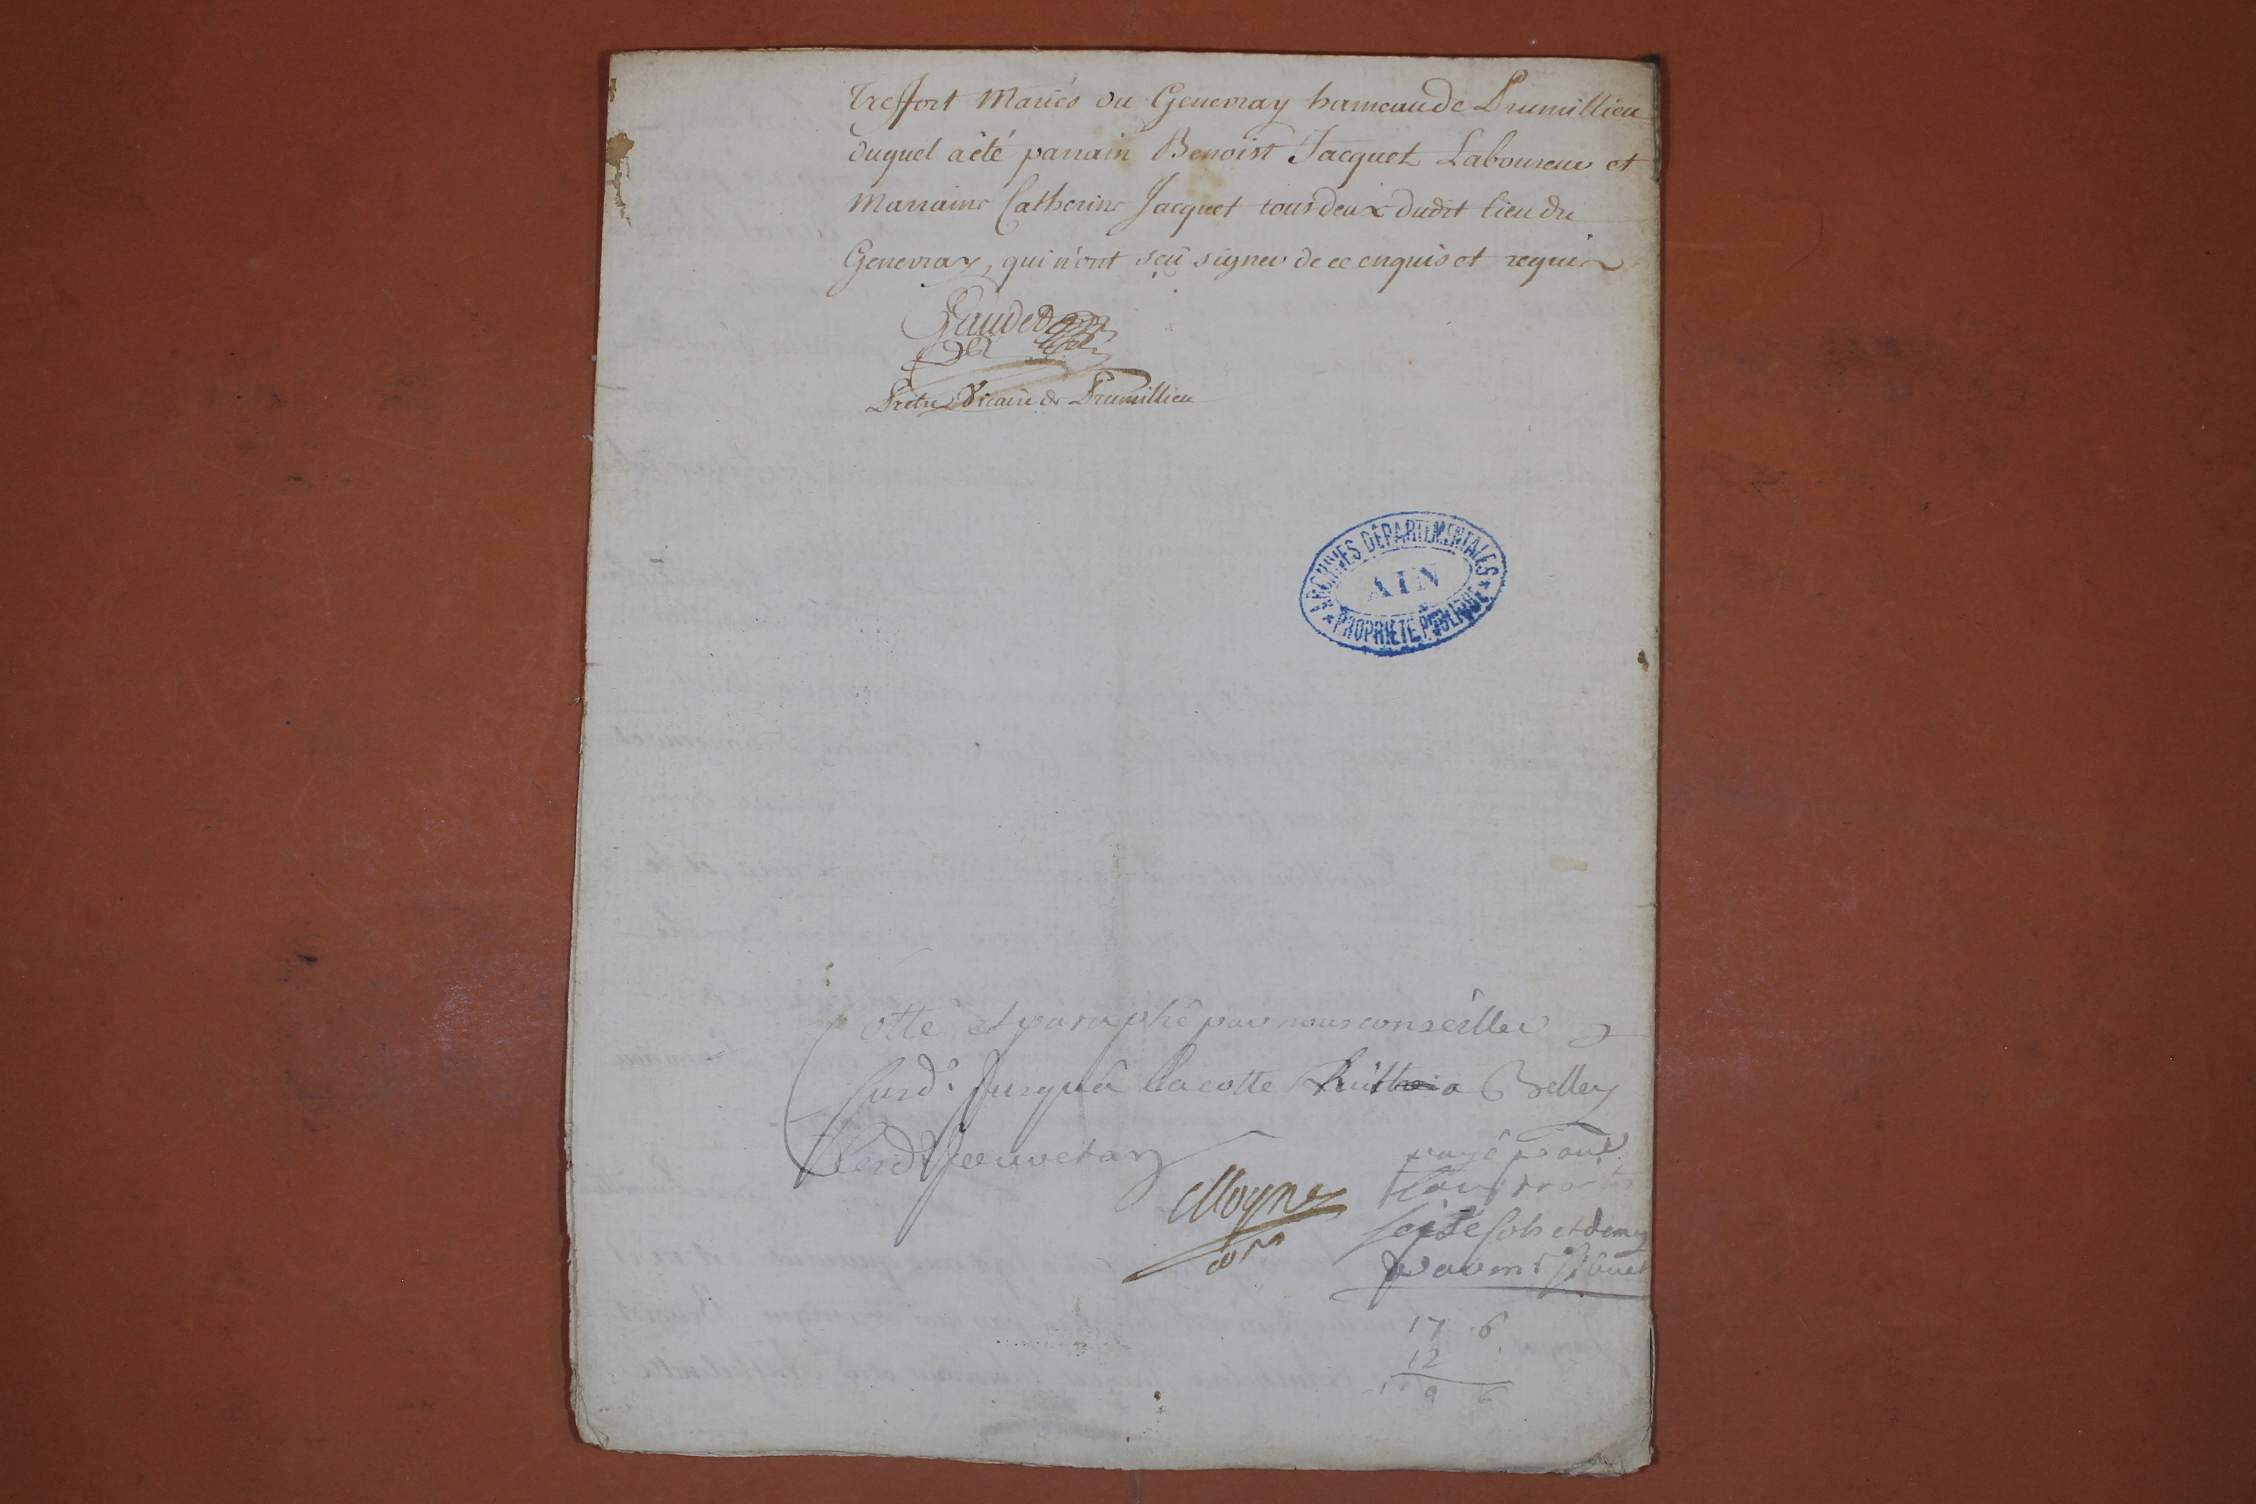 Treffort Mariés du Genevray hameau de Prumillieu
duquel a êté parrain Benoist Jacquet Laboureur et
Marraine Catherine Jacquet tous deux dudit lieu du
Genevray, qui n'ont sçu signer de ce enquis et requis
Prêtre Vicaire de Prumillieu
ARCHIVES DÉPARTEMENTALES
AIN
PROPRIÉTÉ PUBLIQUE
Cotté et paraphé par nous conseiller
susd. Jusqu'à la cotte huit a Belley
Lesd. Jour et an
payé pour
seize sols et demy
17 6
12
1 9 6